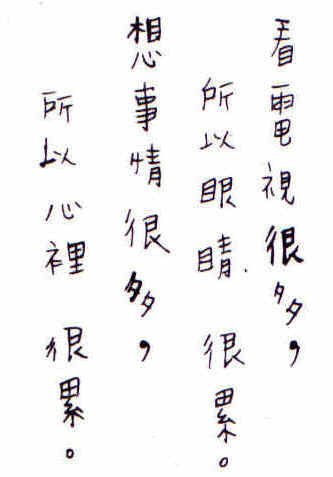 看電視很多，
所以眼睛很累。
想事情很多，
所以心裡很累。